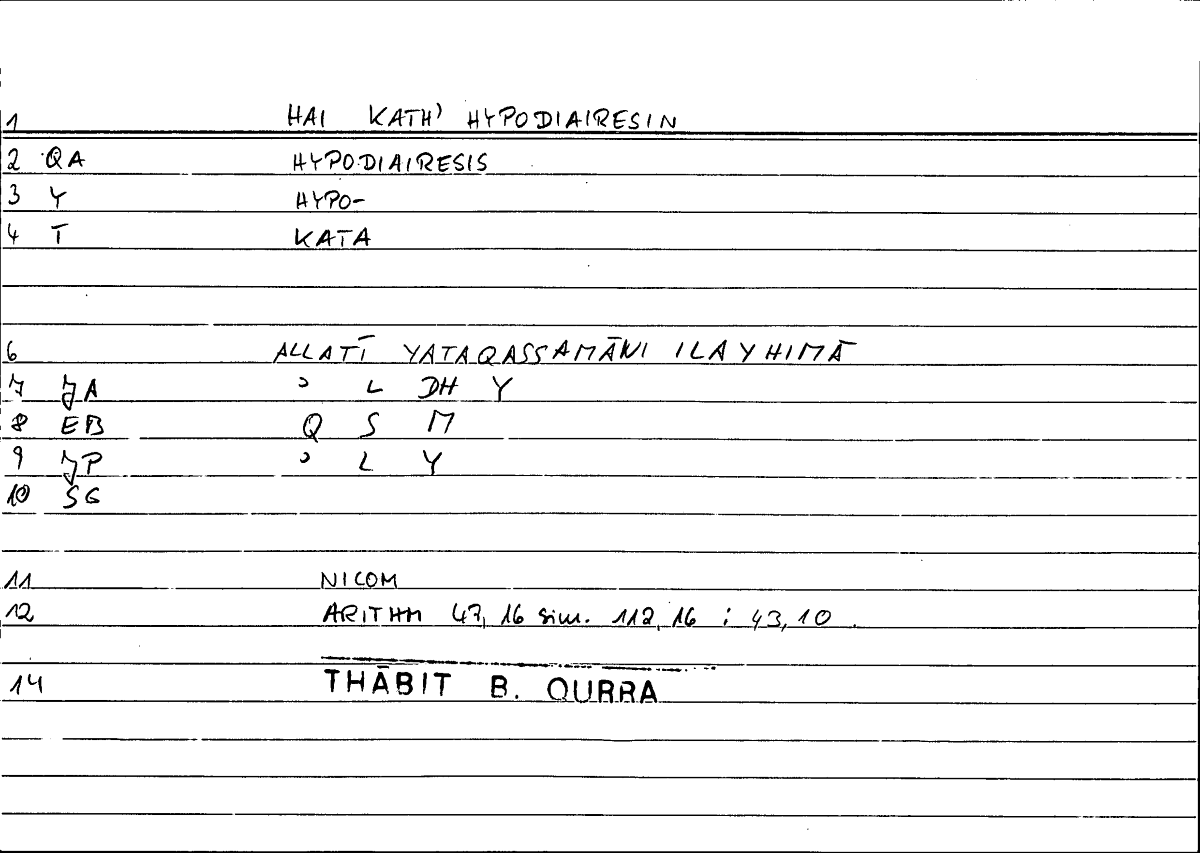 1 HAI KATH' HYPODIAIRESIN
2 QA HYPODIAIRESIS
3 Y HYPO-
4 T KATA
6 ALLATĪ YATAQASSAMĀNI ILAYHIMĀ
7 JA ʾ L DH Y
8 EB Q S M
9 JP ʾ L Y
10 SG
11 NICOM
12 ARITHM 47, 16 sim. 112, 16 ; 43, 10
14 THĀBIT B. QURRA